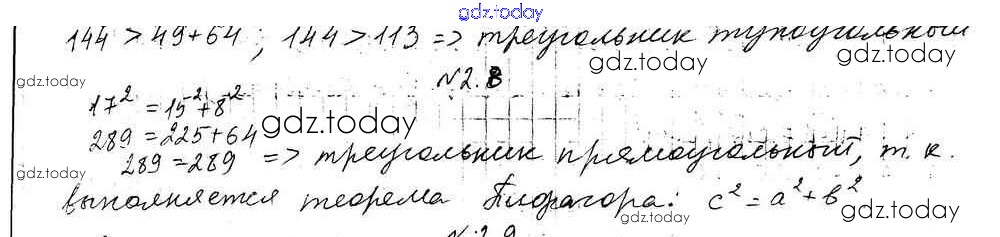 gdz.today
144 > 49+64; 144 > 113 => треугольник тупоугольный
gdz.today
gdz.today
№2.8
gdz.today
17² = 15² + 8²
gdz.today
289 = 225 + 64
289 = 289 => треугольник прямоугольный, т.к.
gdz.today
выполняется теорема Пифагора: c² = a² + b²
gdz.today
gdz.today
№2.9